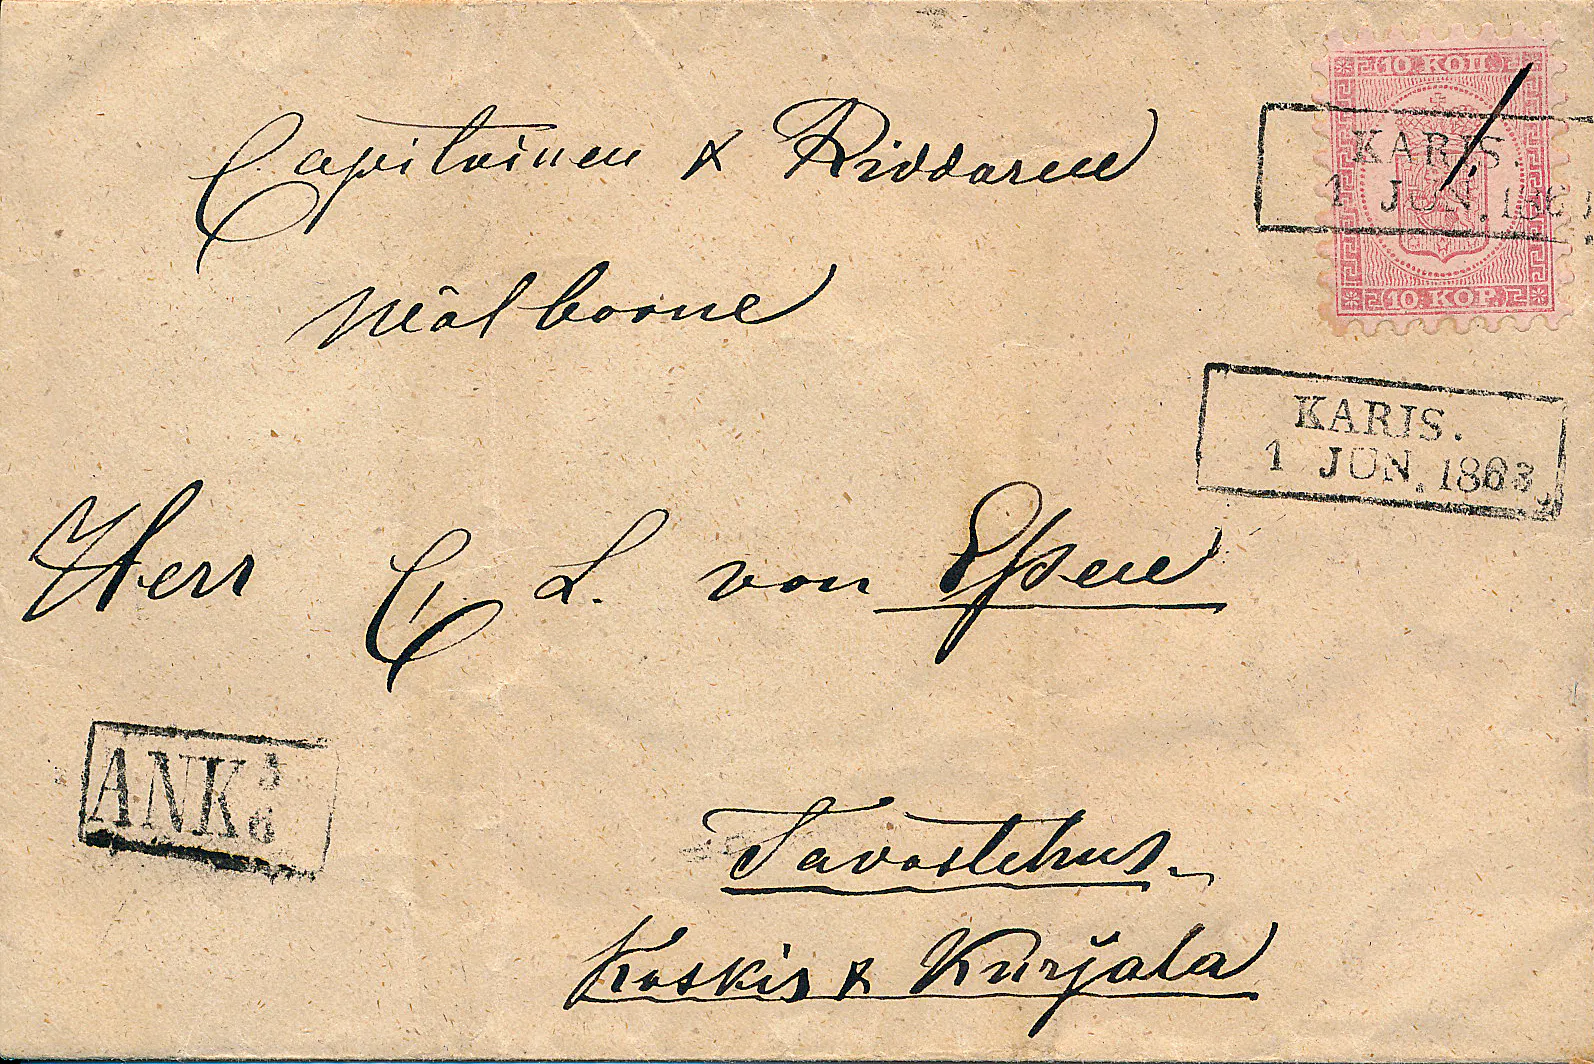 10 КОП.
KARIS.
1 JUN. 186
10 KOP.
Capitainen & Riddaren
Wälborne
KARIS.
1 JUN. 1863
Herr C. L. von Essen
ANK 3
6
Tavastehus.
Koskis & Kurjala